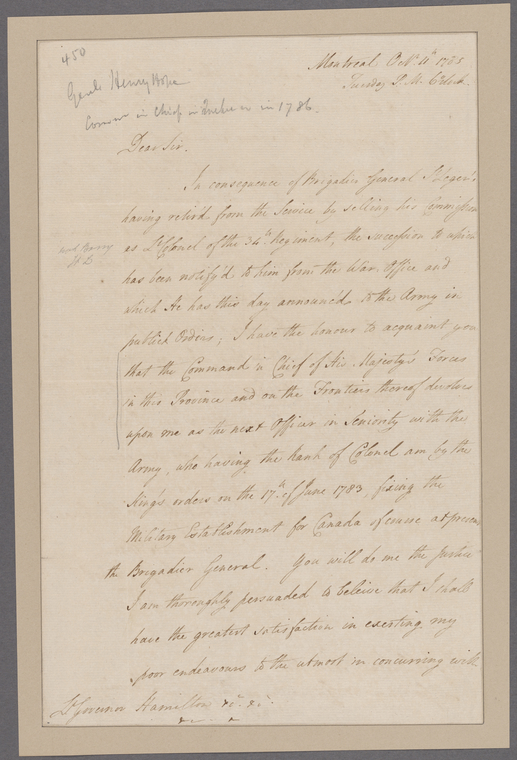 450
Genl. Henry Hope
Comm in Chief in Quebec in 1786.
Montreal Octr. 11th 1785
Tuesday P. M. O'Clock.
Dear Sir.
In consequence of Brigadier General St Leger's
having retir'd from the Service by selling his Commission
as Lt Colonel of the 34th Regiment, the succession to which
has been notify'd to him from the War Office and
which He has this day announced to the Army in
publick Orders; I have the honour to acquaint you
that the Command in Chief of His Majesty's Forces
in this Province and on the Frontiers thereof devolves
upon me as the next Officer in Seniority with the
Army, who having the Rank of Colonel am by the
King's orders on the 17th of June 1783, fixing the
Military Establishment for Canada of course at present
the Brigadier General. You will do me the justice
I am thoroughly persuaded to beleive that I shall
have the greatest satisfaction in exerting my
poor endeavours to the utmost in concurring with
Lt Governor Hamilton &c. &c.
&c. &c.